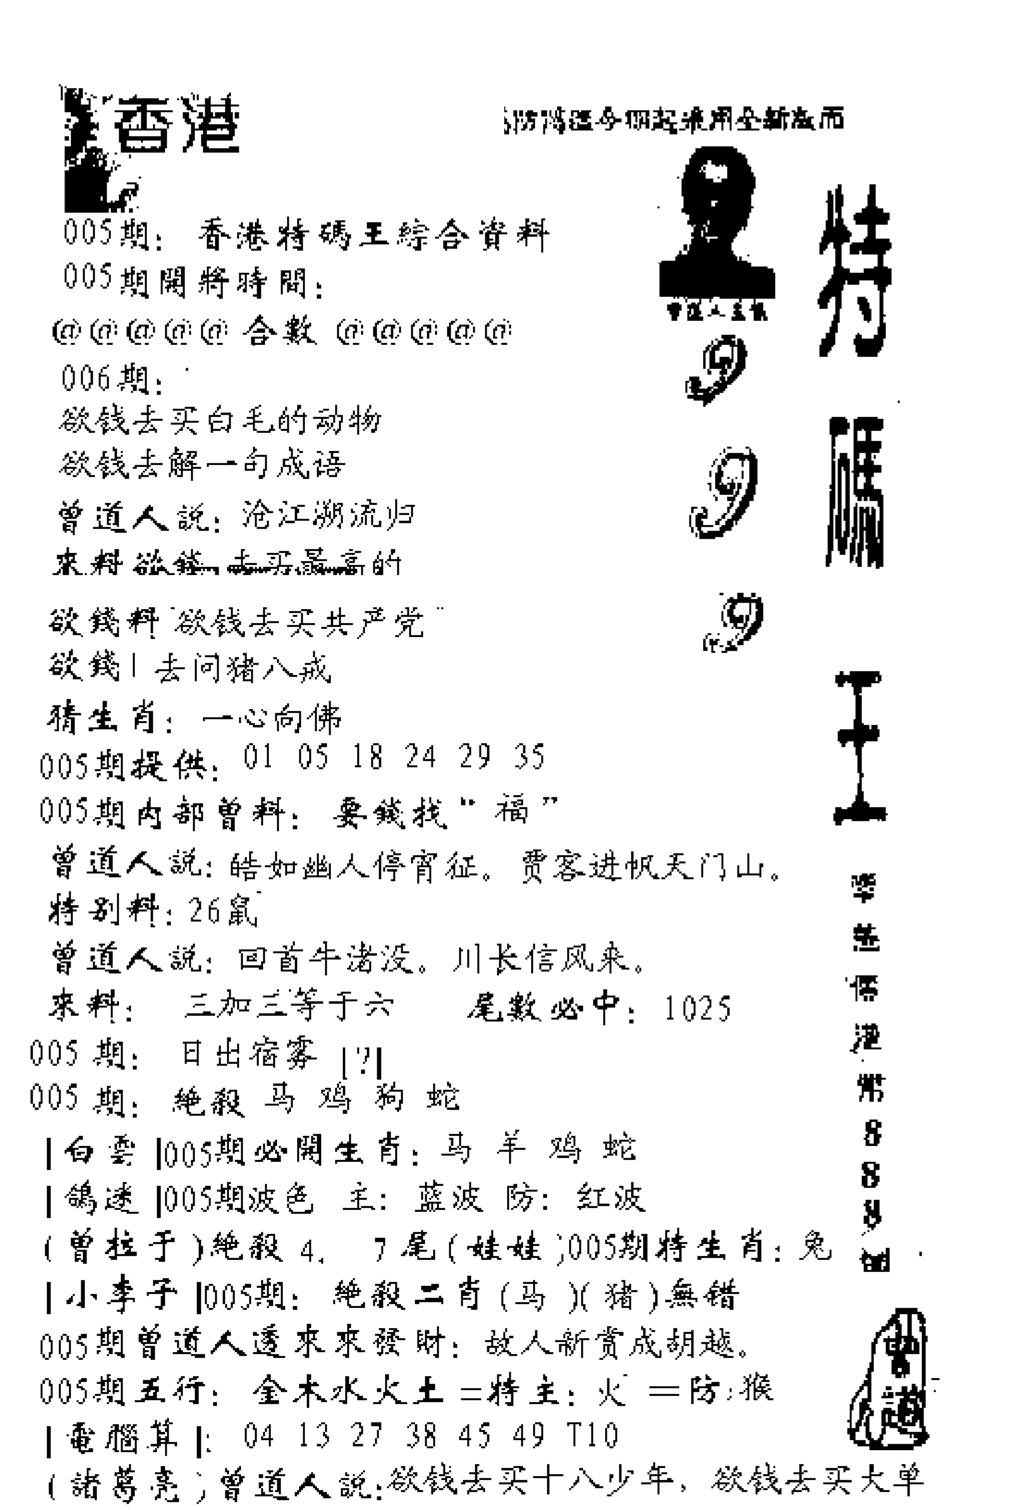 香港
防濫今期起采用全新版面
005期: 香港特碼王綜合資料
005期開將時間:
@@@@@ 合數 @@@@@
006期:
欲钱去买白毛的动物
欲钱去解一句成语
曾道人説: 沧江溯流归
來料欲錢 去买最高的
欲錢料"欲钱去买共产党"
欲錢| 去问猪八戒
猜生肖: 一心向佛
005期提供: 01 05 18 24 29 35
005期内部曾料: 要錢找“福”
曾道人説: 皓如幽人停宵征。贾客进帆天门山。
特别料: 26鼠
曾道人説: 回首牛渚没。川长信风来。
來料: 三加三等于六 尾數必中: 1025
005 期: 日出宿雾 |?|
005 期: 絶殺 马 鸡 狗 蛇
|白雲|005期必開生肖: 马 羊 鸡 蛇
|鴿迷|005期波色 主: 蓝波 防: 红波
(曾拉于)絶殺 4. 7尾(娃娃)005期特生肖: 兔
|小李子|005期: 絶殺二肖(马)(猪)無错
005期曾道人透來來發財: 故人新赏成胡越。
005期五行: 金木水火土=特主: 火 =防:猴
|電腦算|: 04 13 27 38 45 49 T10
(諸葛亮)曾道人説:欲钱去买十八少年, 欲钱去买大单
曾道人主
9
9
9
特
碼
王
港
第
8
8
8
期
曾道